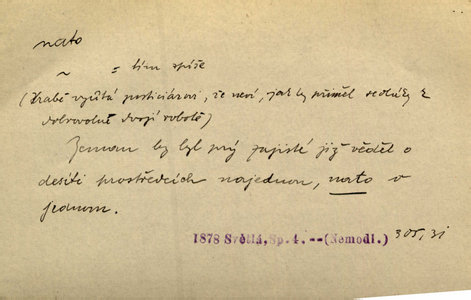 nato
~ = tím spíše
(Hrabě vyčítá justiciárovi, že neví, jak by přiměl sedláky k
dobrovolné dvojí robotě)
Zeman by byl prý zajisté již věděl o
desíti prostředcích najednou, nato o
jednom.
1878 Světlá, Sp. 4. --(Nemodl.) 305, 31